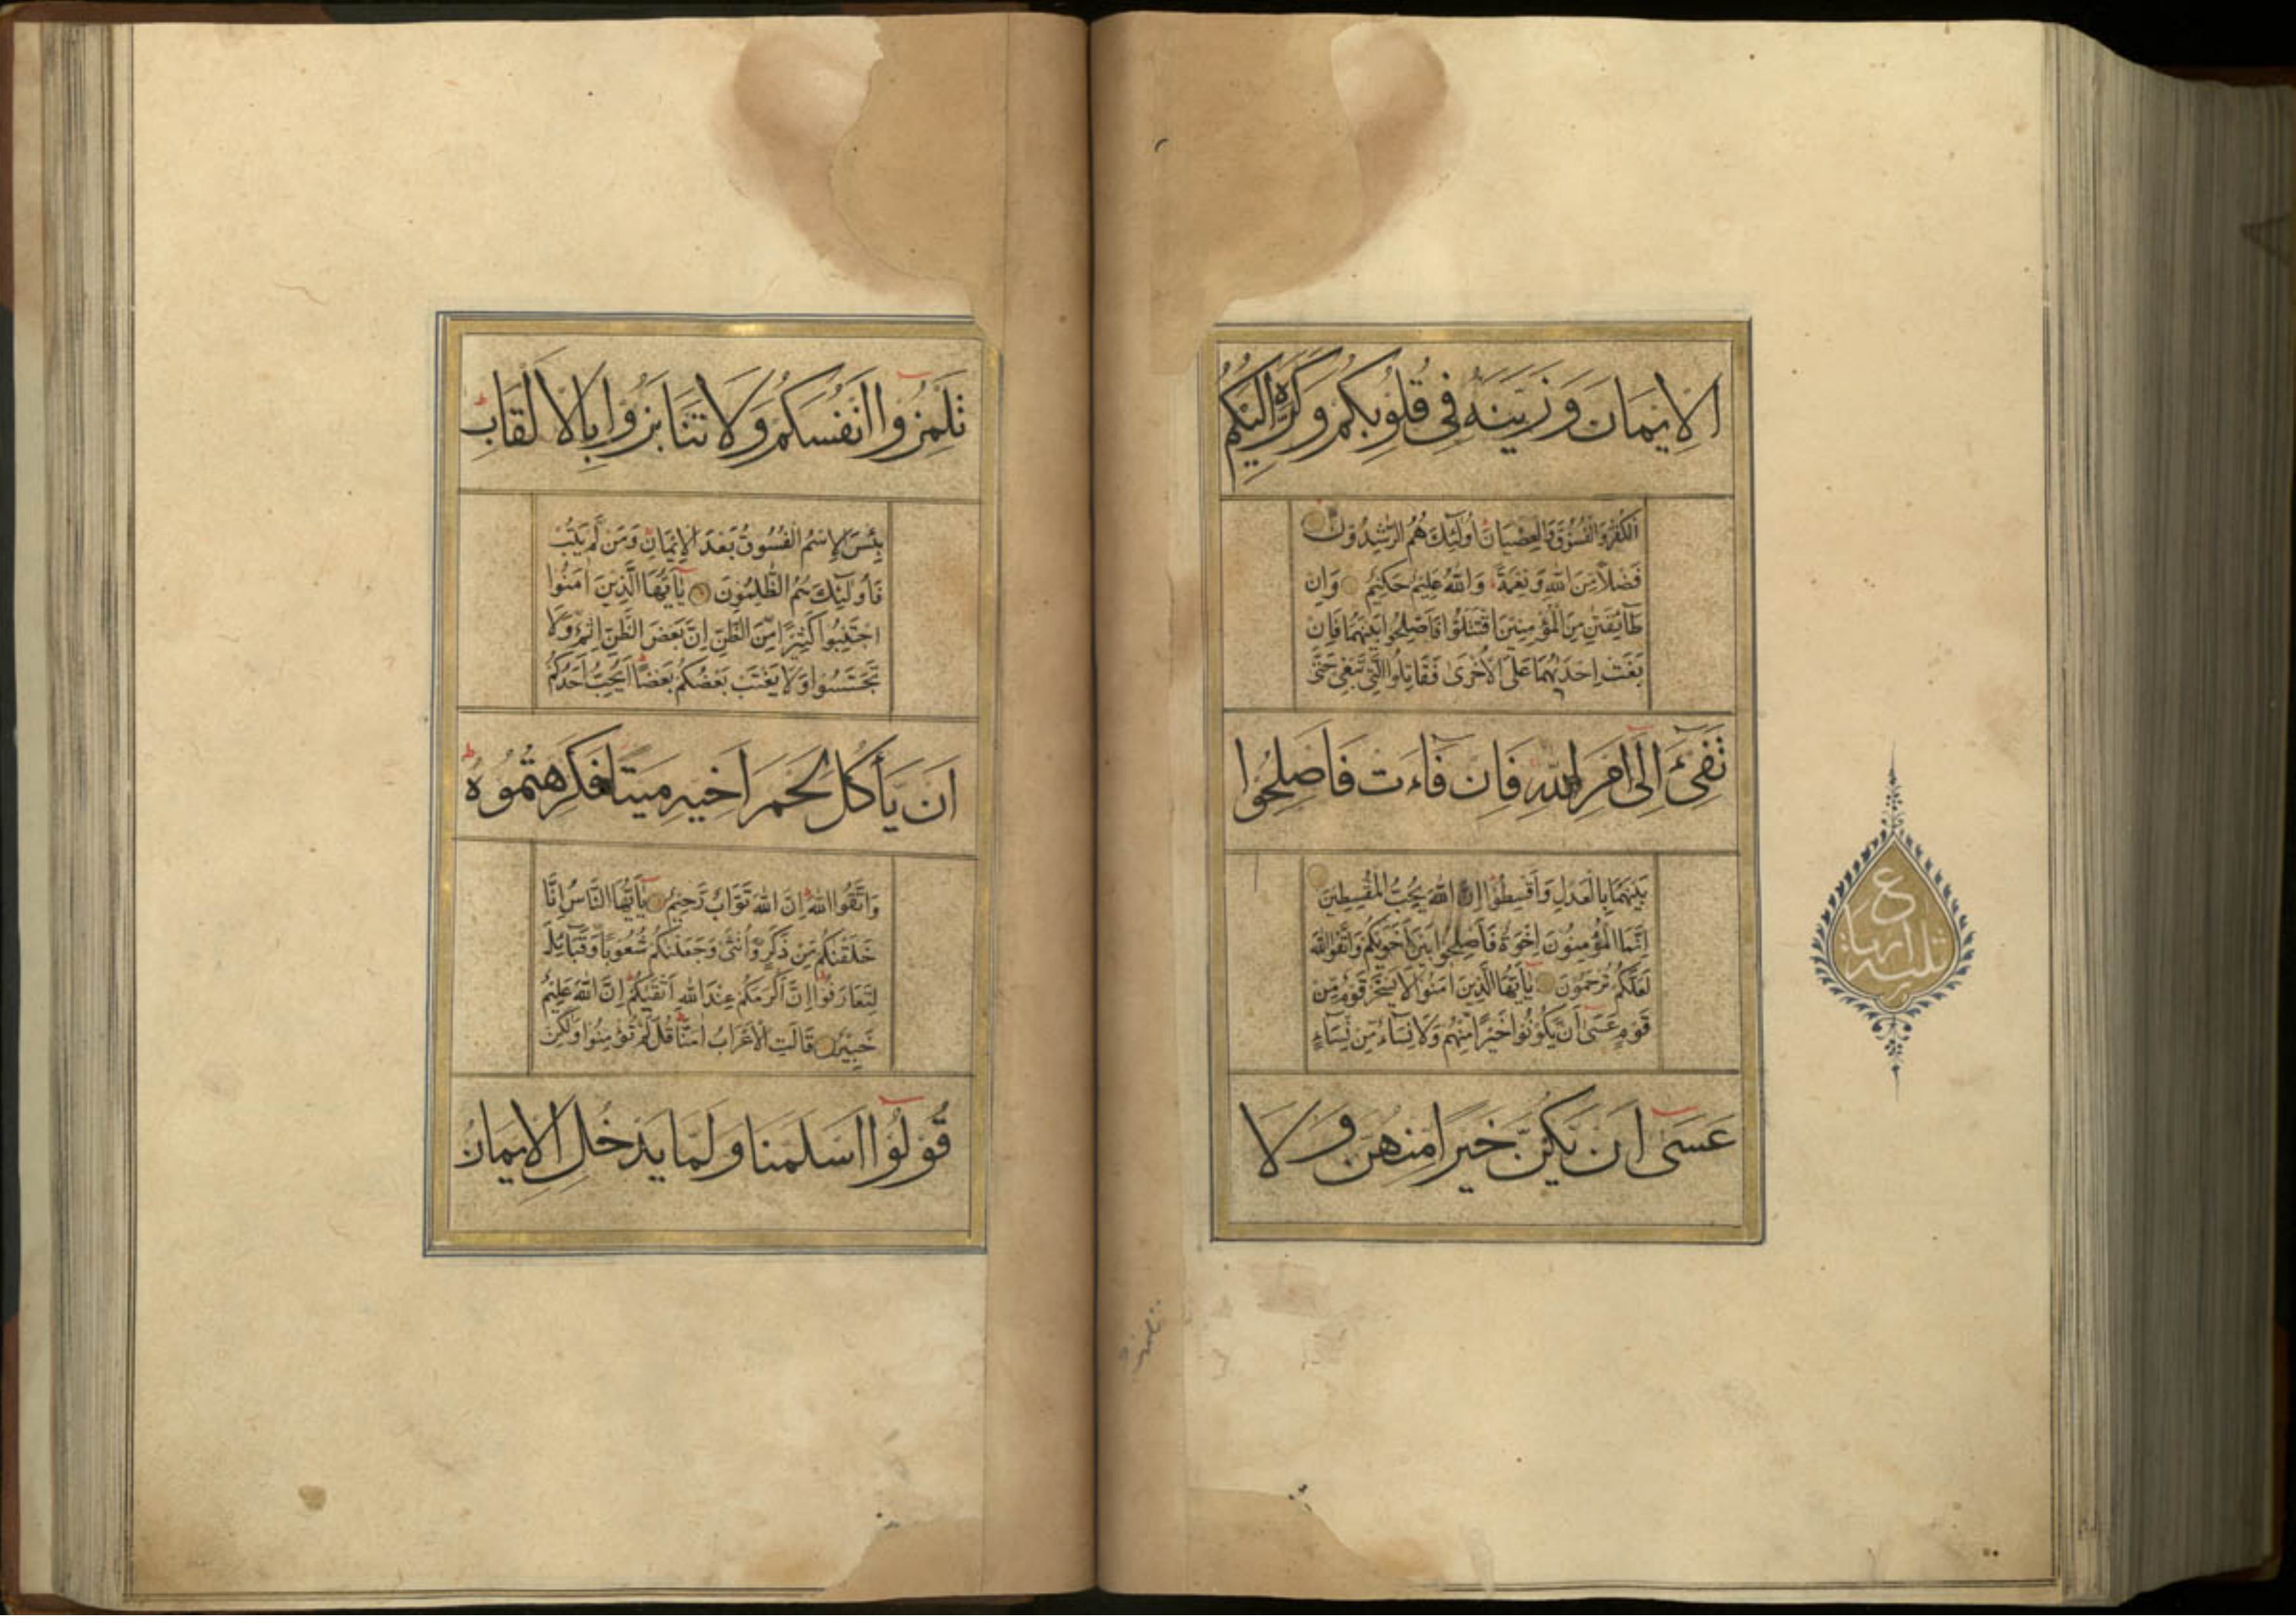 الْاِیْمَانَ وَزَیَّنَهُ فِی قُلُوبِکُمْ وَکَرَّهَ اِلَیْکُمُ
الْکُفْرَ وَالْفُسُوقَ وَالْعِصْیَانَ اُولٰٓئِكَ هُمُ الرّٰشِدُونَ
فَضْلًا مِنَ اللّٰهِ وَنِعْمَةً وَاللّٰهُ عَلِیمٌ حَکِیمٌ وَاِنْ
طَآئِفَتٰنِ مِنَ الْمُؤْمِنِینَ اقْتَتَلُوا فَاَصْلِحُوا بَیْنَهُمَا فَاِنْ
بَغَتْ اِحْدٰیهُمَا عَلَی الْاُخْرٰی فَقَاتِلُوا الَّتِی تَبْغِی حَتّٰی
تَفِیٓءَ اِلٰٓی اَمْرِ اللّٰهِ فَاِنْ فَآءَتْ فَاَصْلِحُوا
بَیْنَهُمَا بِالْعَدْلِ وَاَقْسِطُوا اِنَّ اللّٰهَ یُحِبُّ الْمُقْسِطِینَ
اِنَّمَا الْمُؤْمِنُونَ اِخْوَةٌ فَاَصْلِحُوا بَیْنَ اَخَوَیْکُمْ وَاتَّقُوا اللّٰهَ
لَعَلَّکُمْ تُرْحَمُونَ یٰٓاَیُّهَا الَّذِینَ اٰمَنُوا لَا یَسْخَرْ قَوْمٌ مِنْ
قَوْمٍ عَسٰٓی اَنْ یَکُونُوا خَیْرًا مِنْهُمْ وَلَا نِسَآءٌ مِنْ نِسَآءٍ
عَسٰٓی اَنْ یَکُنَّ خَیْرًا مِنْهُنَّ وَلَا
ع
تَلْمِزُوٓا اَنْفُسَکُمْ وَلَا تَنَابَزُوا بِالْاَلْقَابِ ط
بِئْسَ الِاسْمُ الْفُسُوقُ بَعْدَ الْاِیمَانِ وَمَنْ لَمْ یَتُبْ
فَاُولٰٓئِكَ هُمُ الظّٰلِمُونَ یٰٓاَیُّهَا الَّذِینَ اٰمَنُوا
اجْتَنِبُوا کَثِیرًا مِنَ الظَّنِّ اِنَّ بَعْضَ الظَّنِّ اِثْمٌ وَلَا
تَجَسَّسُوا وَلَا یَغْتَبْ بَعْضُکُمْ بَعْضًا اَیُحِبُّ اَحَدُکُمْ
اَنْ یَأْکُلَ لَحْمَ اَخِیهِ مَیْتًا فَکَرِهْتُمُوهُ ط
وَاتَّقُوا اللّٰهَ اِنَّ اللّٰهَ تَوَّابٌ رَحِیمٌ یٰٓاَیُّهَا النَّاسُ اِنَّا
خَلَقْنٰکُمْ مِنْ ذَکَرٍ وَاُنْثٰی وَجَعَلْنٰکُمْ شُعُوبًا وَقَبَآئِلَ
لِتَعَارَفُوا اِنَّ اَکْرَمَکُمْ عِنْدَ اللّٰهِ اَتْقٰیکُمْ اِنَّ اللّٰهَ عَلِیمٌ
خَبِیرٌ قَالَتِ الْاَعْرَابُ اٰمَنَّا قُلْ لَمْ تُؤْمِنُوا وَلٰکِنْ
قُولُوٓا اَسْلَمْنَا وَلَمَّا یَدْخُلِ الْاِیمَانُ